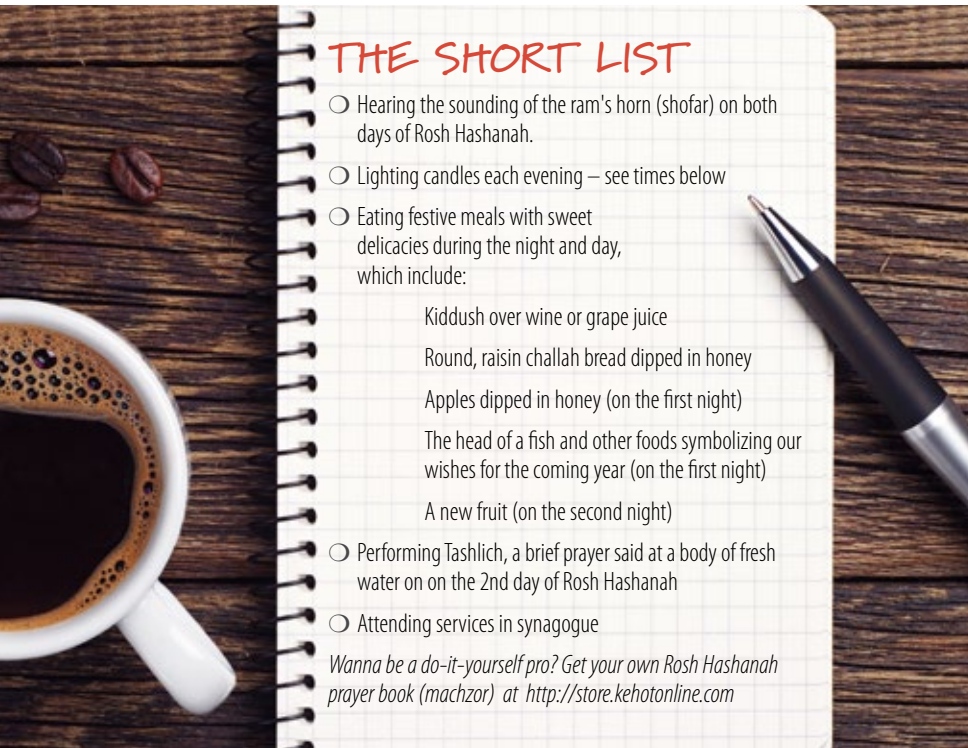 THE SHORT LIST
❍ Hearing the sounding of the ram's horn (shofar) on both
days of Rosh Hashanah.
❍ Lighting candles each evening – see times below
❍ Eating festive meals with sweet
delicacies during the night and day,
which include:
Kiddush over wine or grape juice
Round, raisin challah bread dipped in honey
Apples dipped in honey (on the first night)
The head of a fish and other foods symbolizing our
wishes for the coming year (on the first night)
A new fruit (on the second night)
❍ Performing Tashlich, a brief prayer said at a body of fresh
water on on the 2nd day of Rosh Hashanah
❍ Attending services in synagogue
Wanna be a do-it-yourself pro? Get your own Rosh Hashanah
prayer book (machzor) at http://store.kehotonline.com